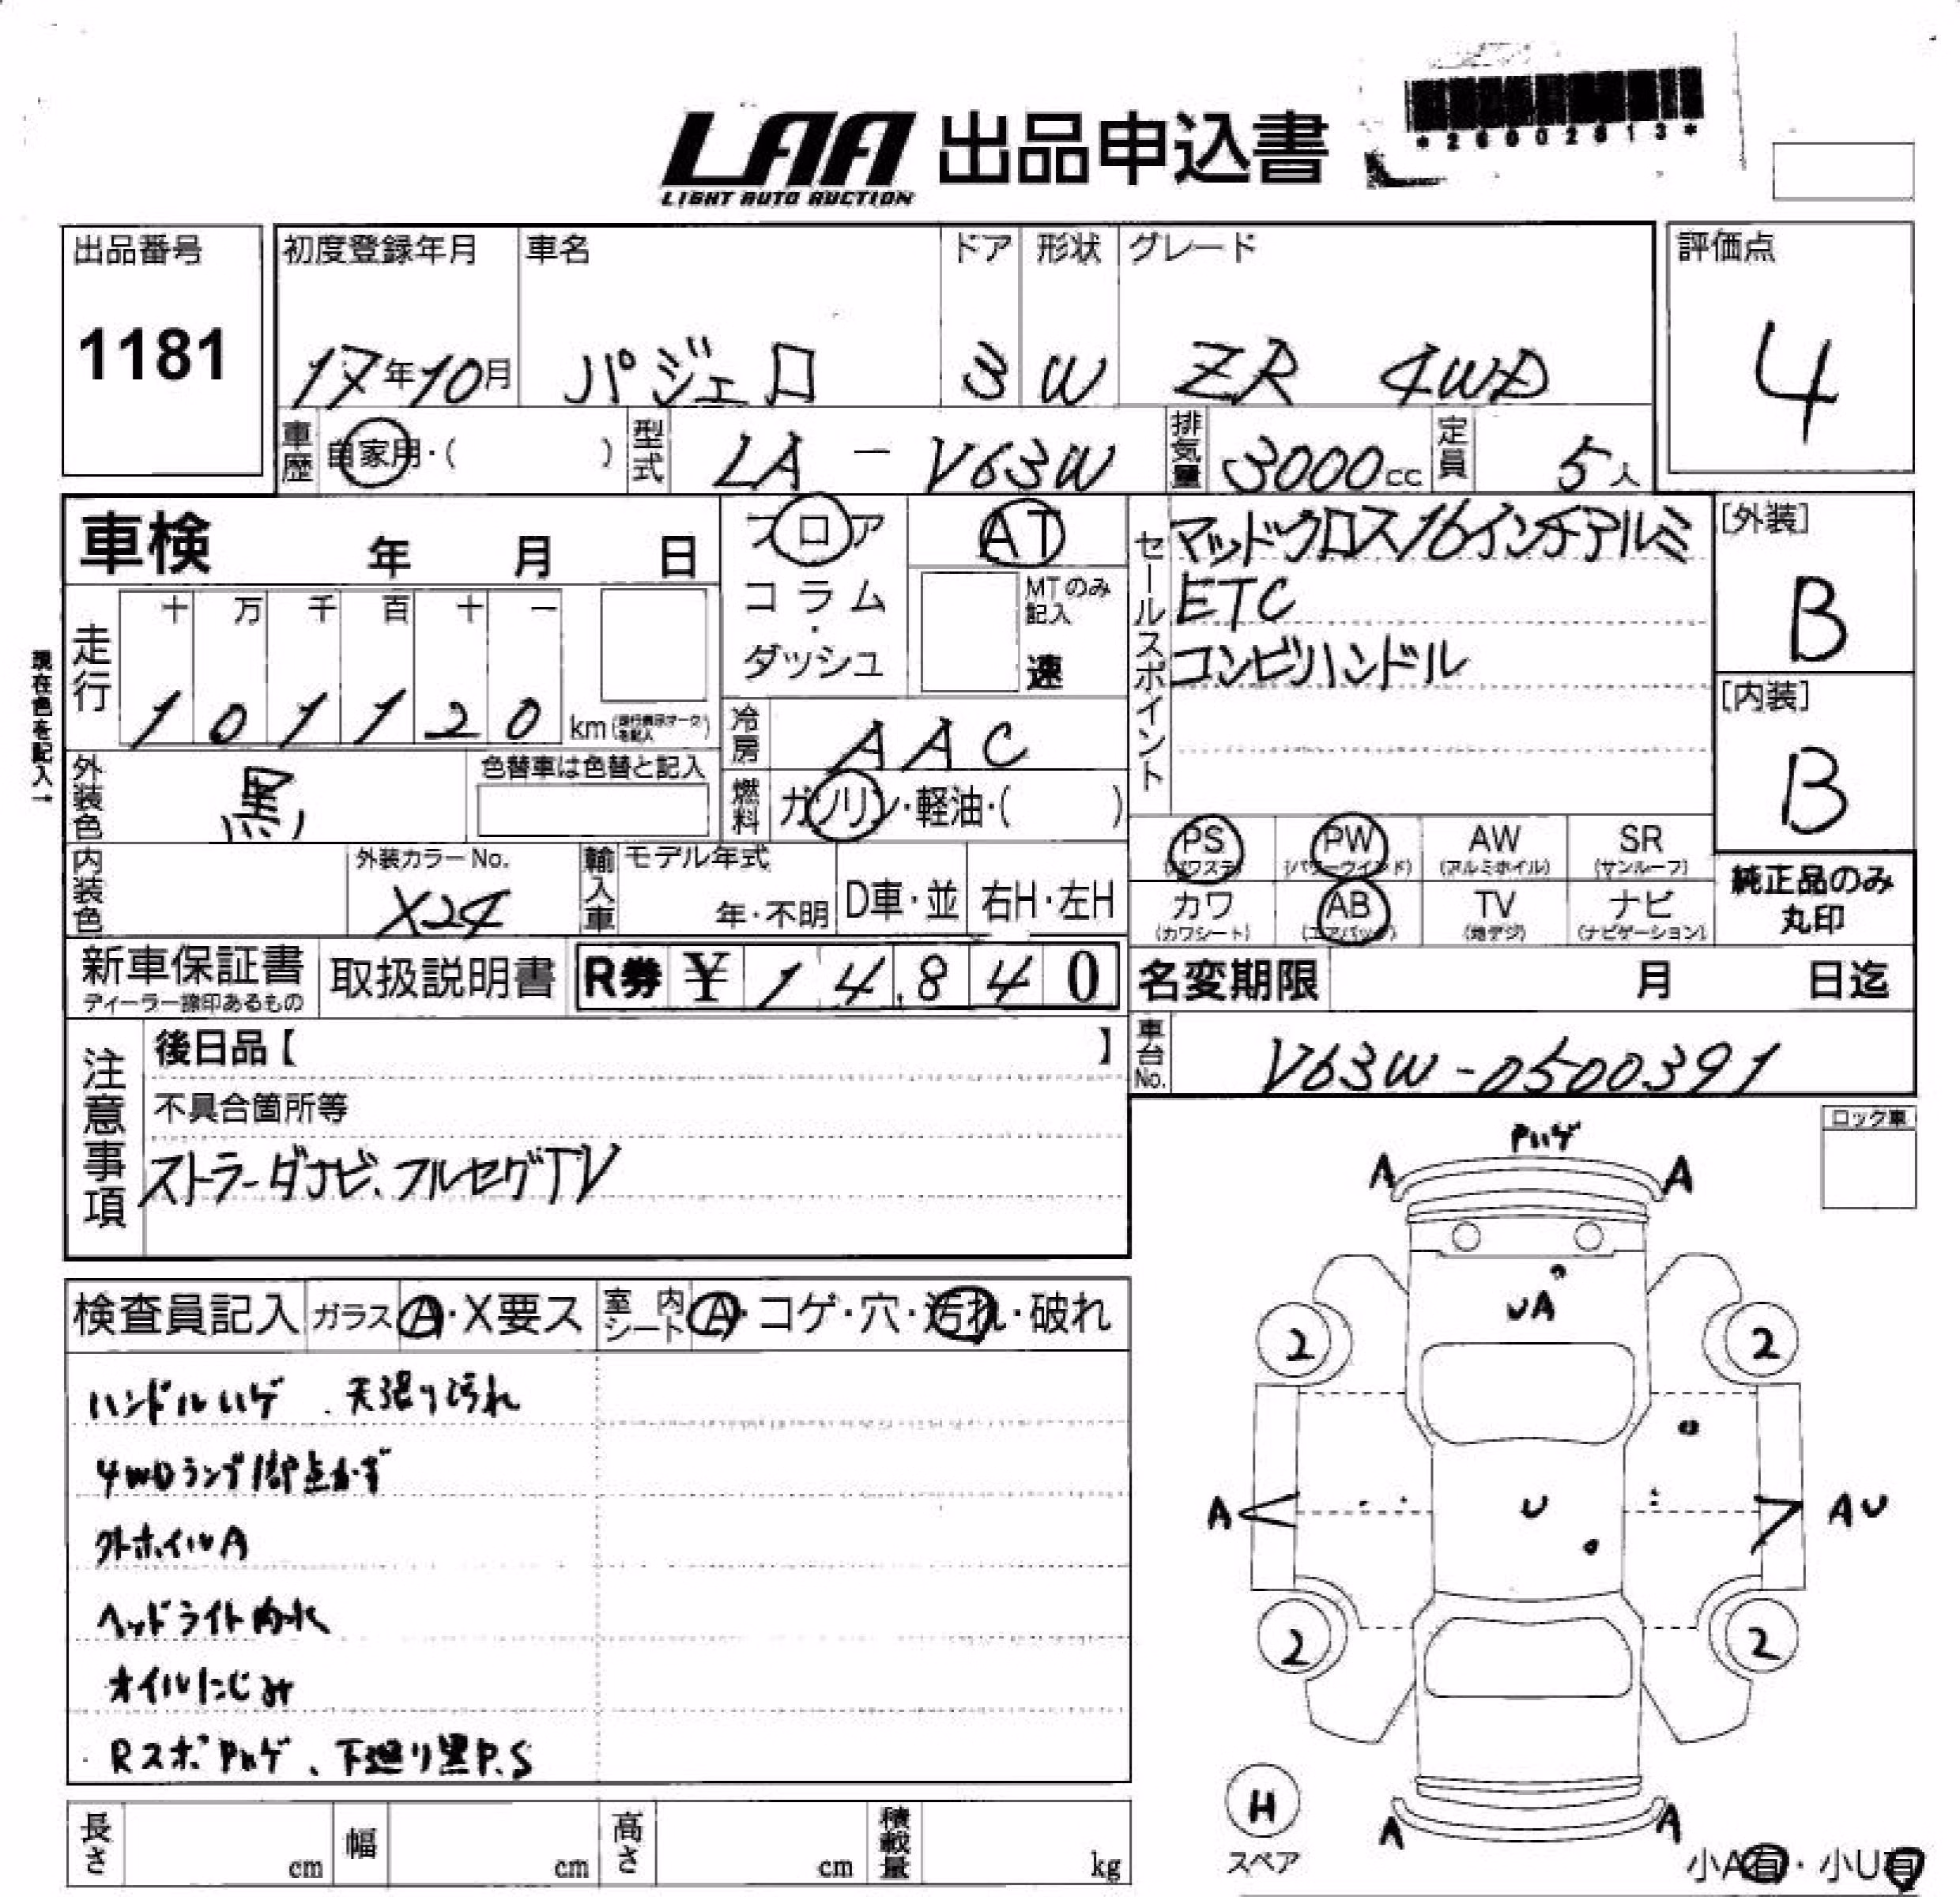 LAA 出品申込書
LIGHT AUTO AUCTION
*26002613*
出品番号
1181
初度登録年月
17年10月
車名
パジェロ
ドア
3
形状
W
グレード
ZR 4WD
評価点
4
車歴
自家用・( )
型式
LA - V63W
排気量
3000cc
定員
5人
車検 年 月 日
フロア
コラム
・
ダッシュ
AT
MTのみ
記入
速
セールスポイント
マッドクロス16インチアルミ
ETC
コンビハンドル
[外装]
B
[内装]
B
現在色を記入→
走行
十 万 千 百 十 一
1 0 1 1 2 0 km
冷房
AAC
外装色
黒
色替車は色替と記入
燃料
ガソリン・軽油・( )
内装色
外装カラーNo.
X24
輸入車
モデル年式
年・不明
D車・並
右H・左H
PS
(パワステ)
PW
(パワーウインド)
AW
(アルミホイル)
SR
(サンルーフ)
カワ
(カワシート)
AB
(エアバック)
TV
(地デジ)
ナビ
(ナビゲーション)
純正品のみ
丸印
新車保証書
ディーラー捺印あるもの
取扱説明書
R券 ¥ 14,840
名変期限 月 日迄
車台No.
V63W-0500391
注意事項
後日品【 】
不具合箇所等
ストラーダナビ、フルセグTV
ロック車
検査員記入
ガラス A・X要ス
室内シート A・コゲ・穴・汚れ・破れ
ハンドルハゲ、天張り汚れ
4WDランプ1部点かず
外ホイルA
ヘッドライト内水
オイルにじみ
RスポPハゲ、下廻り黒P.S
Pハゲ
A A
UA
2 2
A U AU
2 2
H
スペア
A A
小A有・小U有
長さ cm
幅 cm
高さ cm
積載量 kg